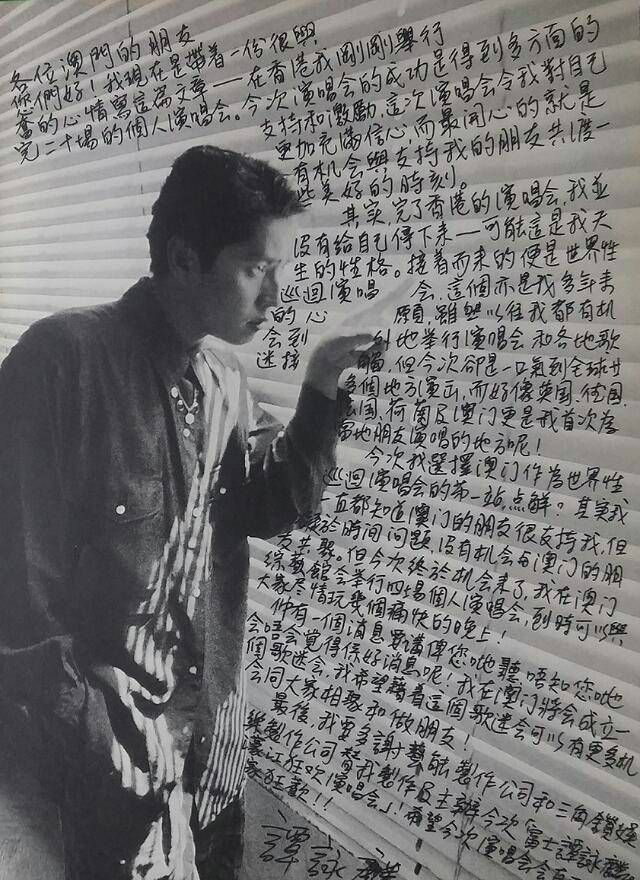 各位澳門的朋友
你們好！我現在是帶着一份很興
奮的心情寫這篇文章——在香港我剛剛舉行
完二十場的個人演唱會。今次演唱會的成功是得到多方面的
支持和激勵，這次演唱會令我對自己
更加充滿信心，而最開心的就是
有机会與支持我的朋友共渡一
些美好的時刻。
其实，完了香港的演唱會，我並
没有給自己停下來——可能這是我天
生的性格。接着而來的便是世界性
巡迴演唱 会，這個亦是我多年来
的心 願，雖然以往我都有机
会到 外地举行演唱会和各地歌
迷接 觸，但今次卻是一口氣到全球廿
多個地方演出，而好像英国、德国、
法国、荷蘭及澳门更是我首次為
當地朋友演唱的地方呢！
今次我選擇澳门作為世界性
巡迴演唱會的第一站點。其实我
一直都知道澳门的朋友很支持我，但
於時间问題，没有机会与澳门的朋
友共聚。但今次終於机会來了，我在澳门
綜藝館会举行四場個人演唱会，到時可以與
大家尽情玩幾個痛快的晚上！
仲有一個消息要講俾您哋聽，唔知您哋
会唔会覺得係好消息呢！我在澳门將会成立一
個歌迷会，我希望藉着這個歌迷会可以有更多机
会同大家相聚和做朋友！
最後，我要多謝藝能製作公司和三角鎖娛
樂製作公司替我製作及主辦今次「富士譚詠麟
濠江狂欢演唱会」！希望今次演唱会会
家狂歡！！
譚詠麟